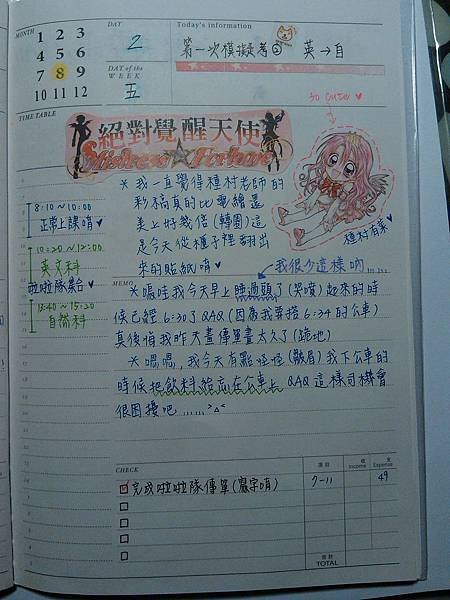 MONTH
1 2 3
4 5 6
7 8 9
10 11 12
DAY
2
DAY of the WEEK
五
Today's information
第一次模擬考② 英→自
TIME TABLE
8:10~10:00
正常上課唷♥
10:20~12:00
英文科
啦啦隊集合♥
13:40~15:20
自然科
絕對覺醒天使
Mistress☆Fortune
so cute ♥
種村有菜♥
*我一直覺得種村老師的
彩稿真的比電繪還
美上好幾倍(轉圈)這
是今天從櫃子裡翻出
來的貼紙唷♥
我很少這樣吶......
MEMO
*嗚哇我今天早上睡過頭了(哭噴)起來的時
候已經6:30了QAQ(因為我要搭6:34的公車)
真後悔我昨天畫傳單畫太久了(跪地)
*嗯嗯,我今天有點怪怪(皺眉)我下公車的
時候把飲料給忘在公車上 QAQ這樣司機會
很困擾吧......>△<
CHECK
項目
收 Income
支 Expense
完成啦啦隊傳單(寫字唷)
7-11
49
總計
TOTAL